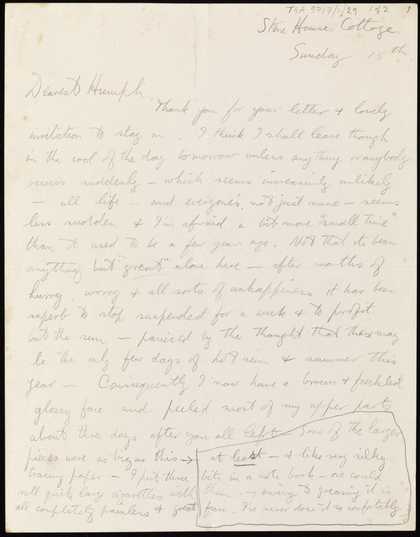 TGA 9717/1/29 1 of 2
1
Stone House Cottage
Sunday 15th
Dearest Humph
Thank you for your letter & lovely
invitation to stay on. I think I shall leave though
in the cool of the day tomorrow unless anything or anybody
occurs suddenly – which seems increasingly unlikely
– all life – and everyone's, not just mine – seems
less sudden, & I'm afraid a bit more "small time"
than it used to be a few years ago. Not that its been
anything but "great" alone here – after months of
hurry, worry & all sorts of unhappiness it has been
superb to stop suspended for a week & to profit
but the sun – panicked by the thought that there may
be the only few days of hot sun & summer this
year – Consequently I now have a brown & freckled
glossy face and peeled most of my upper parts
about three days after you all left – Some of the larger
pieces were as big as this → at least – & like very silky
tracing paper – I put three bits in a note book – one could
roll quite large cigarettes with them – owing to greasing it is
all completely painless & great fun. I've never done it so comfortably